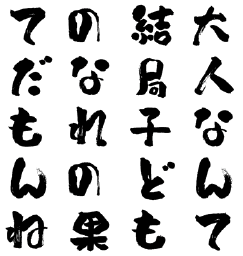 大人なんて
結局子ども
のなれの果
てだもんね